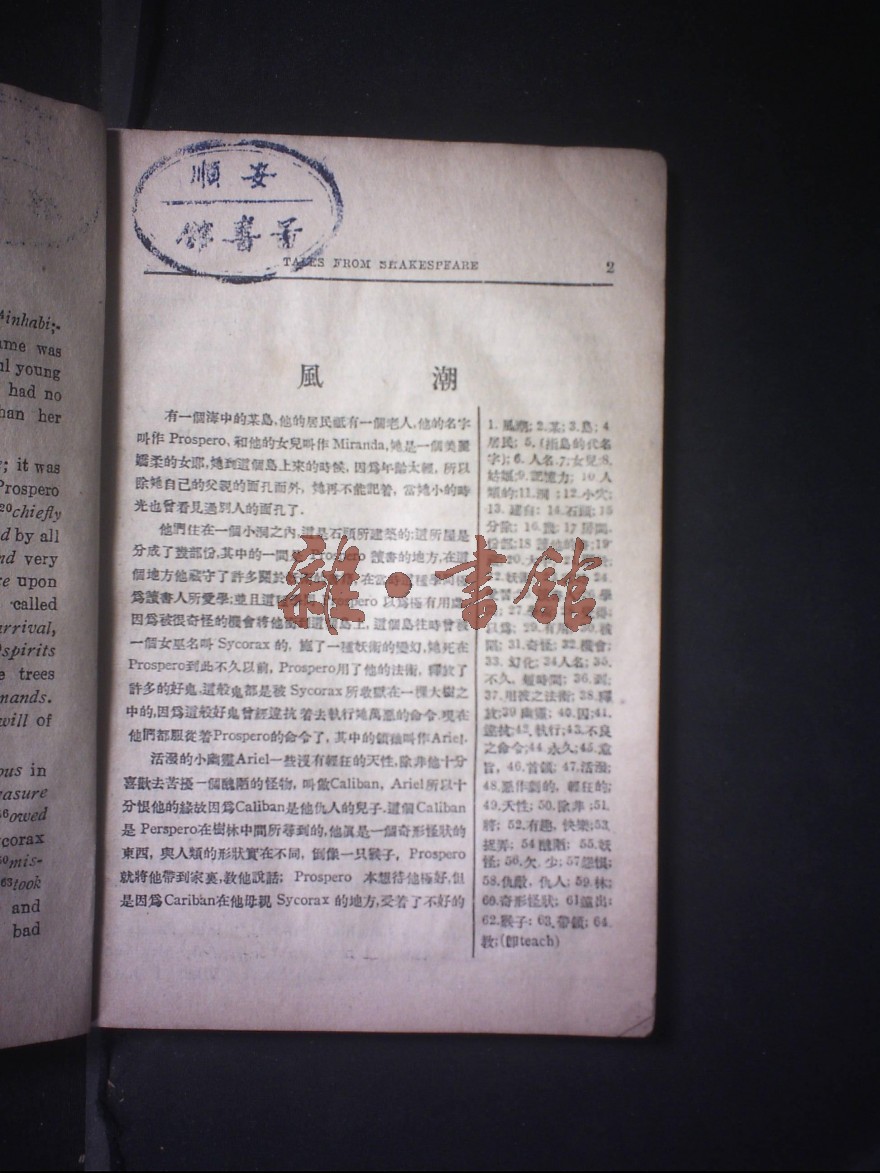 inhabi-
ame was
ul young
had no
han her
; it was
Prospero
20chiefly
d by all
nd very
re upon
called
arrival,
spirits
e trees
mands.
will of
ous in
easure
owed
corax
mis-
63took
and
bad
順安
TALES FROM SHAKESPEARE 2
風潮
有一個海中的某島,他的居民祗有一個老人,他的名字
叫作 Prospero, 和他的女兒叫作 Miranda,她是一個美麗
嬌柔的女郎,她到這個島上來的時候,因爲年齡太輕,所以
除她自己的父親的面孔而外,她再不能記着,當她小的時
光也曾看見過別人的面孔了.
他們住在一個小洞之內,這是石頭所建築的;這所屋是
分成了幾部份,其中的一間 Prospero 讀書的地方,在這
個地方他藏守了許多關於 在當
爲讀書人所愛學;並且這 Prospero 以爲極有用
因爲被很奇怪的機會將他 島上,這個島往時曾被
一個女巫名叫 Sycorax 的,施了一種妖術的變幻,她死在
Prospero到此不久以前,Prospero用了他的法術,釋放了
許多的好鬼,這般鬼都是被 Sycorax 所收獄在一棵大樹之
中的,因爲這般好鬼曾經違抗着去執行她萬惡的命令,現在
他們都服從着Prospero的命令了,其中的領袖叫作Ariel.
活潑的小幽靈Ariel一些沒有輕狂的天性,除非他十分
喜歡去苦擾一個醜陋的怪物,叫做Caliban, Ariel所以十
分恨他的緣故因爲Caliban是他仇人的兒子.這個Caliban
是 Perspero在樹林中間所尋到的,他眞是一個奇形怪狀的
東西,與人類的形狀實在不同,倒像一只猴子,Prospero
就將他帶到家裏,敎他說話; Prospero 本想待他極好,但
是因爲Cariban在他母親 Sycorax 的地方,受着了不好的
1.風潮; 2.某; 3.島; 4.
居民; 5.(指島的代名
字); 6.人名.7;女兒;8.
姑娘;9.記憶力; 10 人
類的;11.洞; 12.小穴;
13. 14.石頭; 15
分除; 16. 17 房間,
31.奇怪; 32.機會;
33.幻化; 34人名; 35.
不久,短時間; 36.到;
37.用彼之法術; 38.釋
放;39 幽靈; 40.囚;41.
違抗;42.執行;43.不良
之命令;44.永久;45.意
旨,46.首領; 47.活潑;
48.惡作劇的,輕狂的;
49.天性; 50.除非;51.
將; 52.有趣,快樂;53.
54 醜陋; 55.妖
怪; 56.欠,少; 57怨恨;
58.仇敵,仇人; 59.林;
60.奇形怪狀; 61遠出;
62.猴子; 63.帶領; 64.
敎;(即teach)
雜·書館